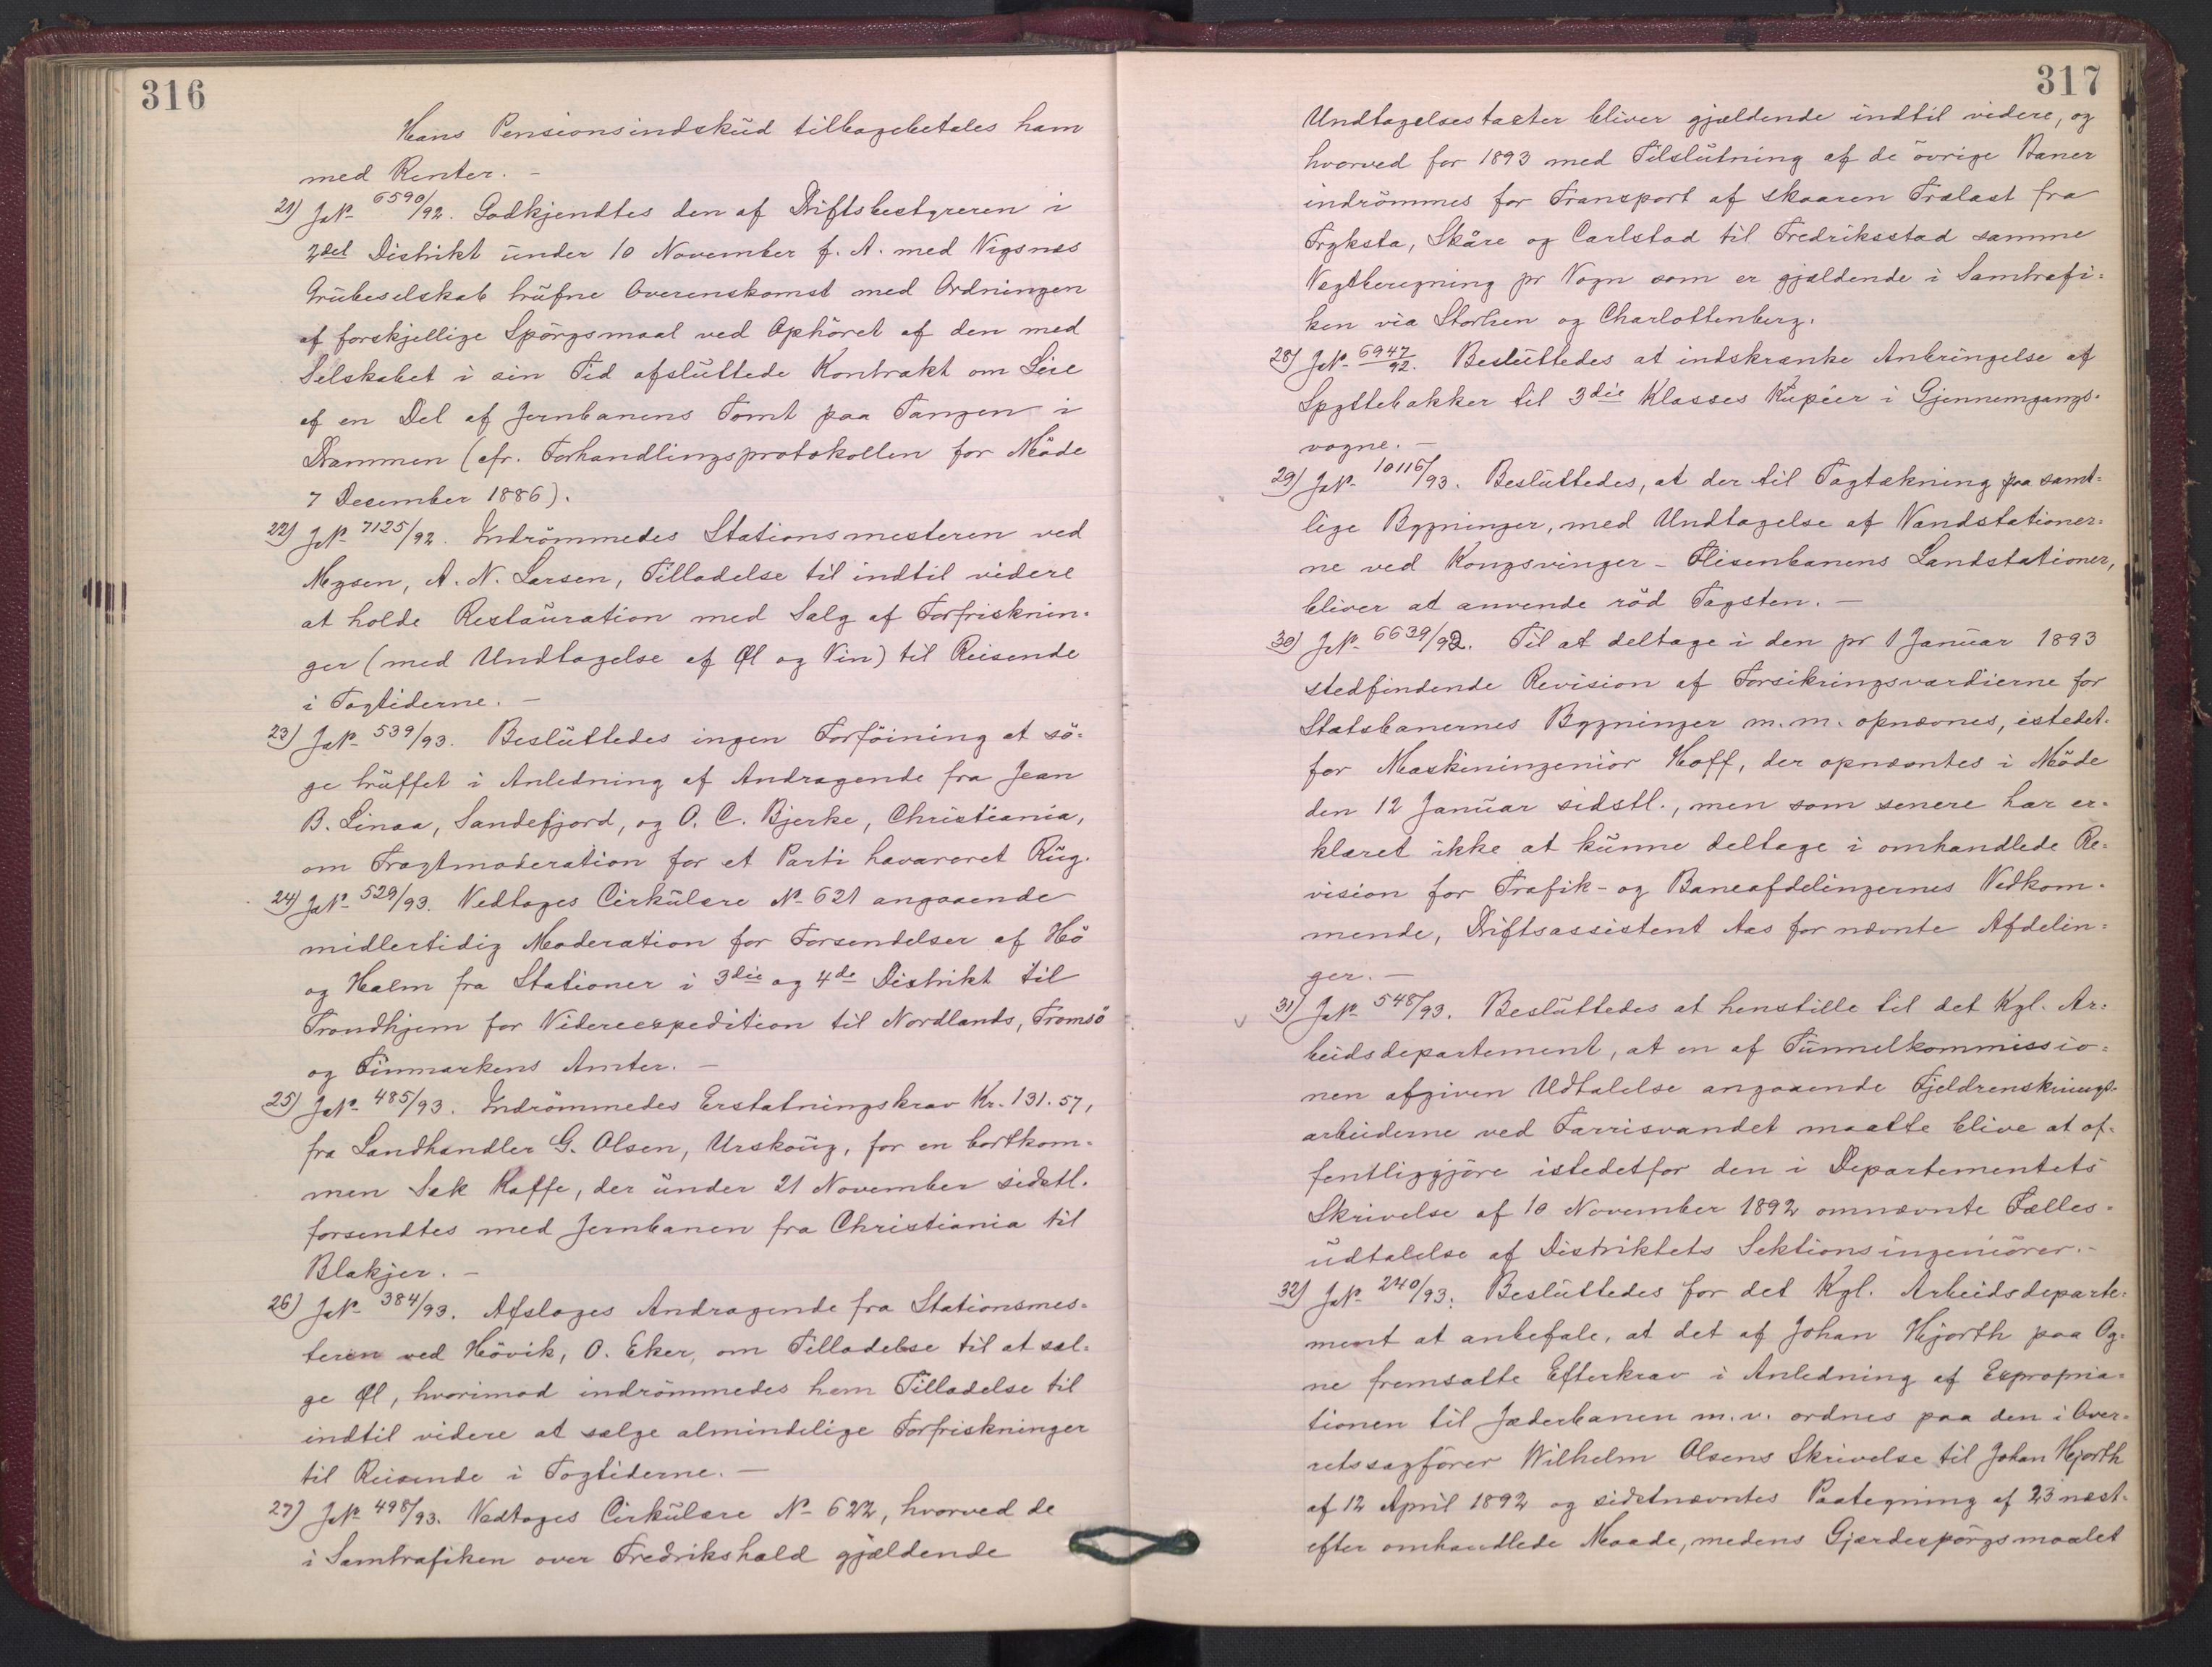 316
Hans Pensionsindskud tilbagebetales ham
med Renter. -
21) J№ 6590/92. Godkjendtes den af Driftsbestyreren i
2det Distrikt under 10 November f. A. med Vigsnæs
Grubeselskab trufne Overenskomst med Ordningen
af forskjellige Spörgsmaal ved Ophöret af den med
Selskabet i sin Tid afsluttede Kontrakt om Leie
af en Del af Jernbanens Tomt paa Tangen i
Drammen (cfr. Forhandlingsprotokollen for Möde
7 Desember 1886).
22) J№ 7125/92. Indrömmedes Stationsmesteren ved
Mysen, A. N. Larsen, Tilladelse til indtil videre
at holde Restauration med Salg af Forfrisknin-
ger (med Undtagelse af Øl og Vin) til Reisende
i Togtiderne. -
23) J№ 539/93. Besluttedes ingen Forföining at sö-
ge truffet i Anledning af Andragende fra Jean
B. Linaa, Sandefjord, og O. C. Bjerke, Christiania,
om Fragtmoderation for et Parti havareret Rug.
24) J№ 529/93. Vedtoges Cirkulære № 621 angaaende
midlertidig Moderation for Forsendelser af Hö
og Halm fra Stationer i 3die og 4de Distrikt til
Trondhjem for Videreexpedition til Nordlands, Tromsö
og Finmarkens Amter. -
25) J№ 485/93. Indrömmedes Erstatningskrav Kr. 131.57,
fra Landhandler G. Olsen, Urskoug, for en bortkom-
men Sæk Kaffe, der under 21 November sidstl.
forsendtes med Jernbanen fra Christiania til
Blakjer. -
26) J№ 384/93. Afsloges Andragende fra Stationsmes-
teren ved Hövik, O. Eker, om Tilladelse til at sæl-
ge Øl, hvorimod indrömmedes ham Tilladelse til
indtil videre at sælge almindelige Forfriskninger
til Reisende i Togtiderne. -
27) J№ 498/93. Vedtoges Cirkulære № 622, hvorved de
i Samtrafiken over Fredrikshald gjældende
317
Undtagelsestaxter bliver gjældende indtil videre, og
hvorved for 1893 med Tilslutning af de övrige Baner
indrömmes for Transport af skaaren Trælast fra
Fryksta, Skåre og Carlstad til Fredriksstad samme
Vægtberegning pr Vogn som er gjældende i Samtrafi-
ken via Storlien og Charlottenberg.
28) J№ 6947/92. Besluttedes at indskrænke Anbringelse af
Spyttebakker til 3die Klasses Kupéer i Gjennemgangs-
vogne. -
29) J№ 10116/93. Besluttedes, at der til Tagtækning paa samt-
lige Bygninger, med Undtagelse af Vandstationer-
ne ved Kongsvinger - Flisenbanens Landstationer,
bliver at anvende röd Tagsten. -
30) J№ 6639/92. Til at deltage i den pr 1 Januar 1893
stedfindende Revision af Forsikringsværdierne for
Statsbanernes Bygninger m. m. opnævnes, istedet-
for Maskiningeniör Hoff, der opnævntes i Möde
den 12 Januar sidstl., men som senere har er-
klæret ikke at kunne deltage i omhandlede Re-
vision for Trafik- og Baneafdelingernes Vedkom-
mende, Driftsassistent Aas for nævnte Afdelin-
ger. -
31) J№ 548/93. Besluttedes at henstille til det Kgl. Ar-
beidsdepartement, at en af Tunnelkommissio-
nen afgiven Udtalelse angaaende Fjeldrensknings-
arbeiderne ved Farrisvandet maatte blive at of-
fentliggjöre istedetfor den i Departementets
Skrivelse af 10 November 1892 omnævnte Fælles-
udtalelse af Distriktets Sektionsingeniörer. -
32) J№ 240/93. Besluttedes for det Kgl. Arbeidsdeparte-
ment at anbefale, at det af Johan Hjorth paa Og-
ne fremsatte Efterkrav i Anledning af Expropria-
tionen til Jæderbanen m. v. ordnes paa den i Over-
retssagförer Wilhelm Olsens Skrivelse til Johan Hjorth
af 12 April 1892 og sidstnævntes Paategning af 23 næst-
efter omhandlede Maade, medens Gjærdespörgsmaalet